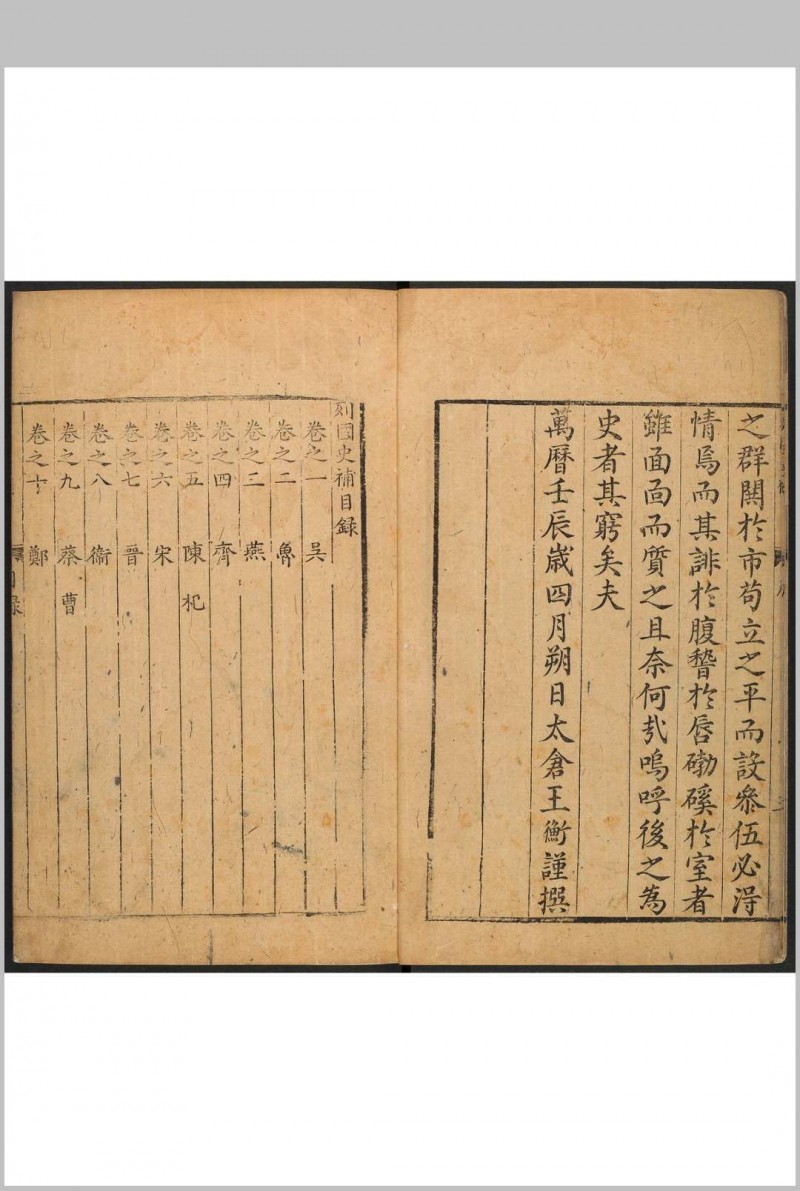 之群鬨於市苟立之平而設叅伍必得
情焉而其誹於腹謷於唇磡磎於室者
雖面面而質之且奈何㦲嗚呼後之為
史者其窮矣夫
萬曆壬辰歲四月朔日太倉王衡謹撰
刻國史補目録
卷之一 吳
卷之二 魯
卷之三 燕
卷之四 齊
卷之五 陳 杞
卷之六 宋
卷之七 晉
卷之八 衞
卷之九 蔡 曹
卷之十 鄭